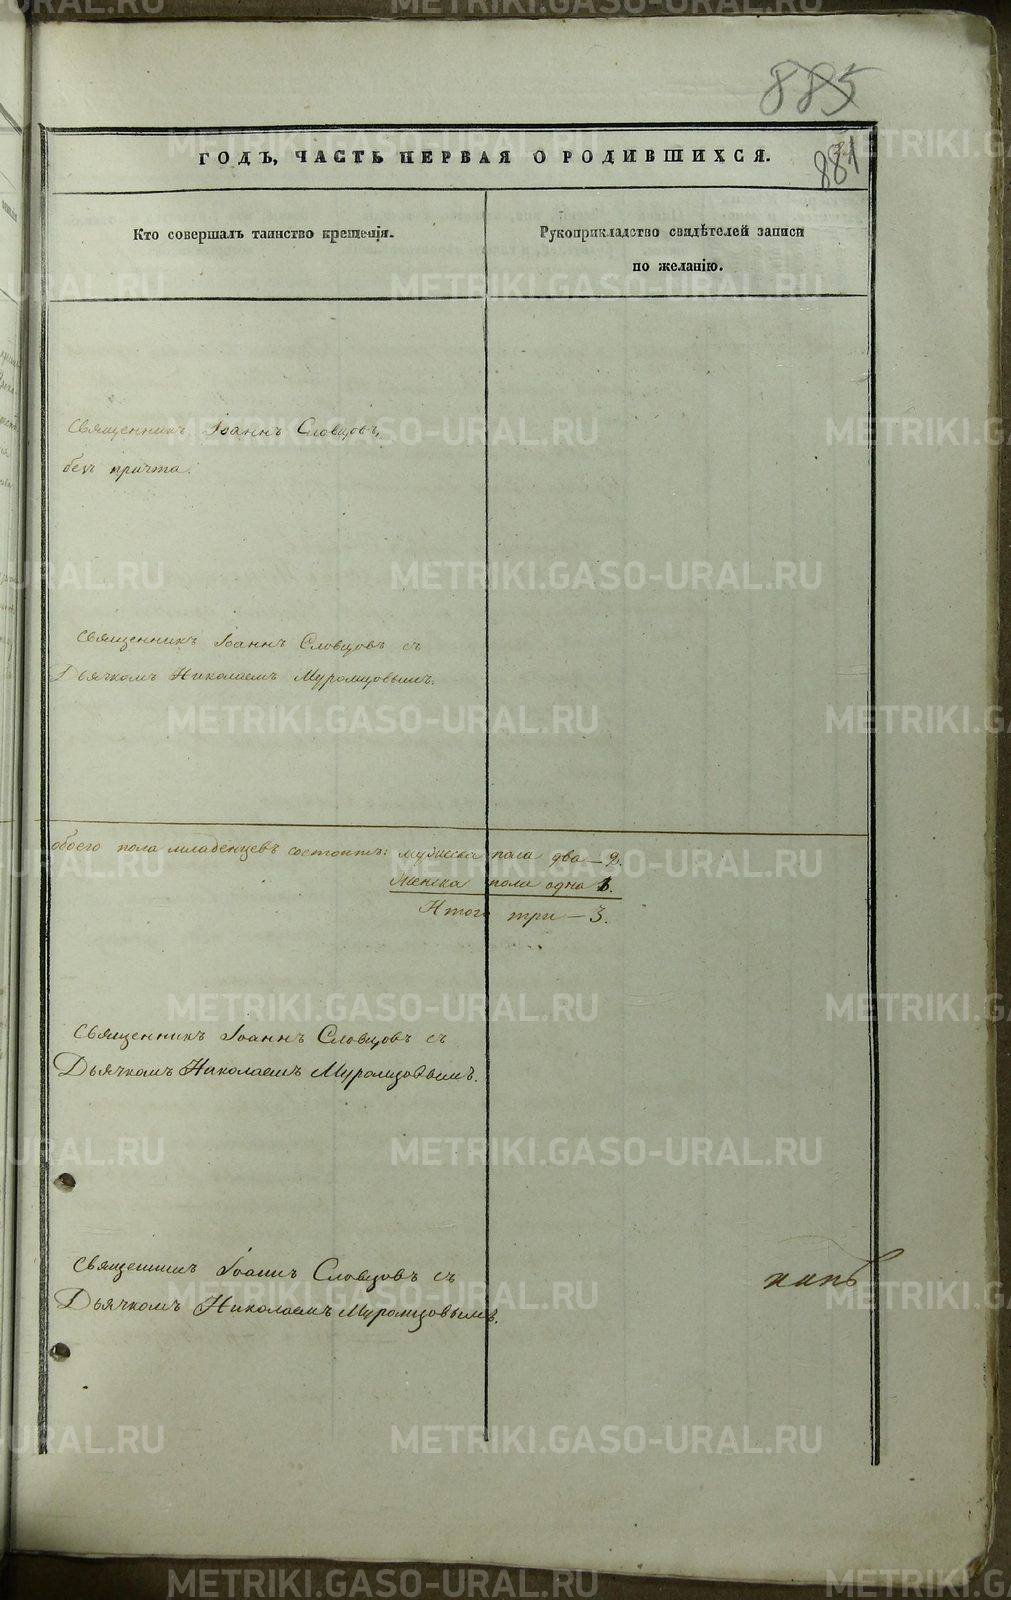 885
881
ГОДЪ, ЧАСТЬ ПЕРВАЯ О РОДИВШИХСЯ.
Кто совершалъ таинство крещенія.
Рукоприкладство свидѣтелей записи
по желанію.
Священникъ Іоаннъ Словцовъ,
безъ причта.
Священникъ Іоаннъ Словцовъ съ
Дьячкомъ Николаемъ Муромцовымъ.
обоего пола младенцевъ состоитъ: мужеска пола два – 2.
Женска пола одна 1.
Итого три – 3.
Священникъ Іоаннъ Словцовъ съ
Дьячкомъ Николаемъ Муромцовымъ.
Священникъ Іоаннъ Словцовъ съ
Дьячкомъ Николаемъ Муромцовымъ.
METRIKI.GASO-URAL.RU